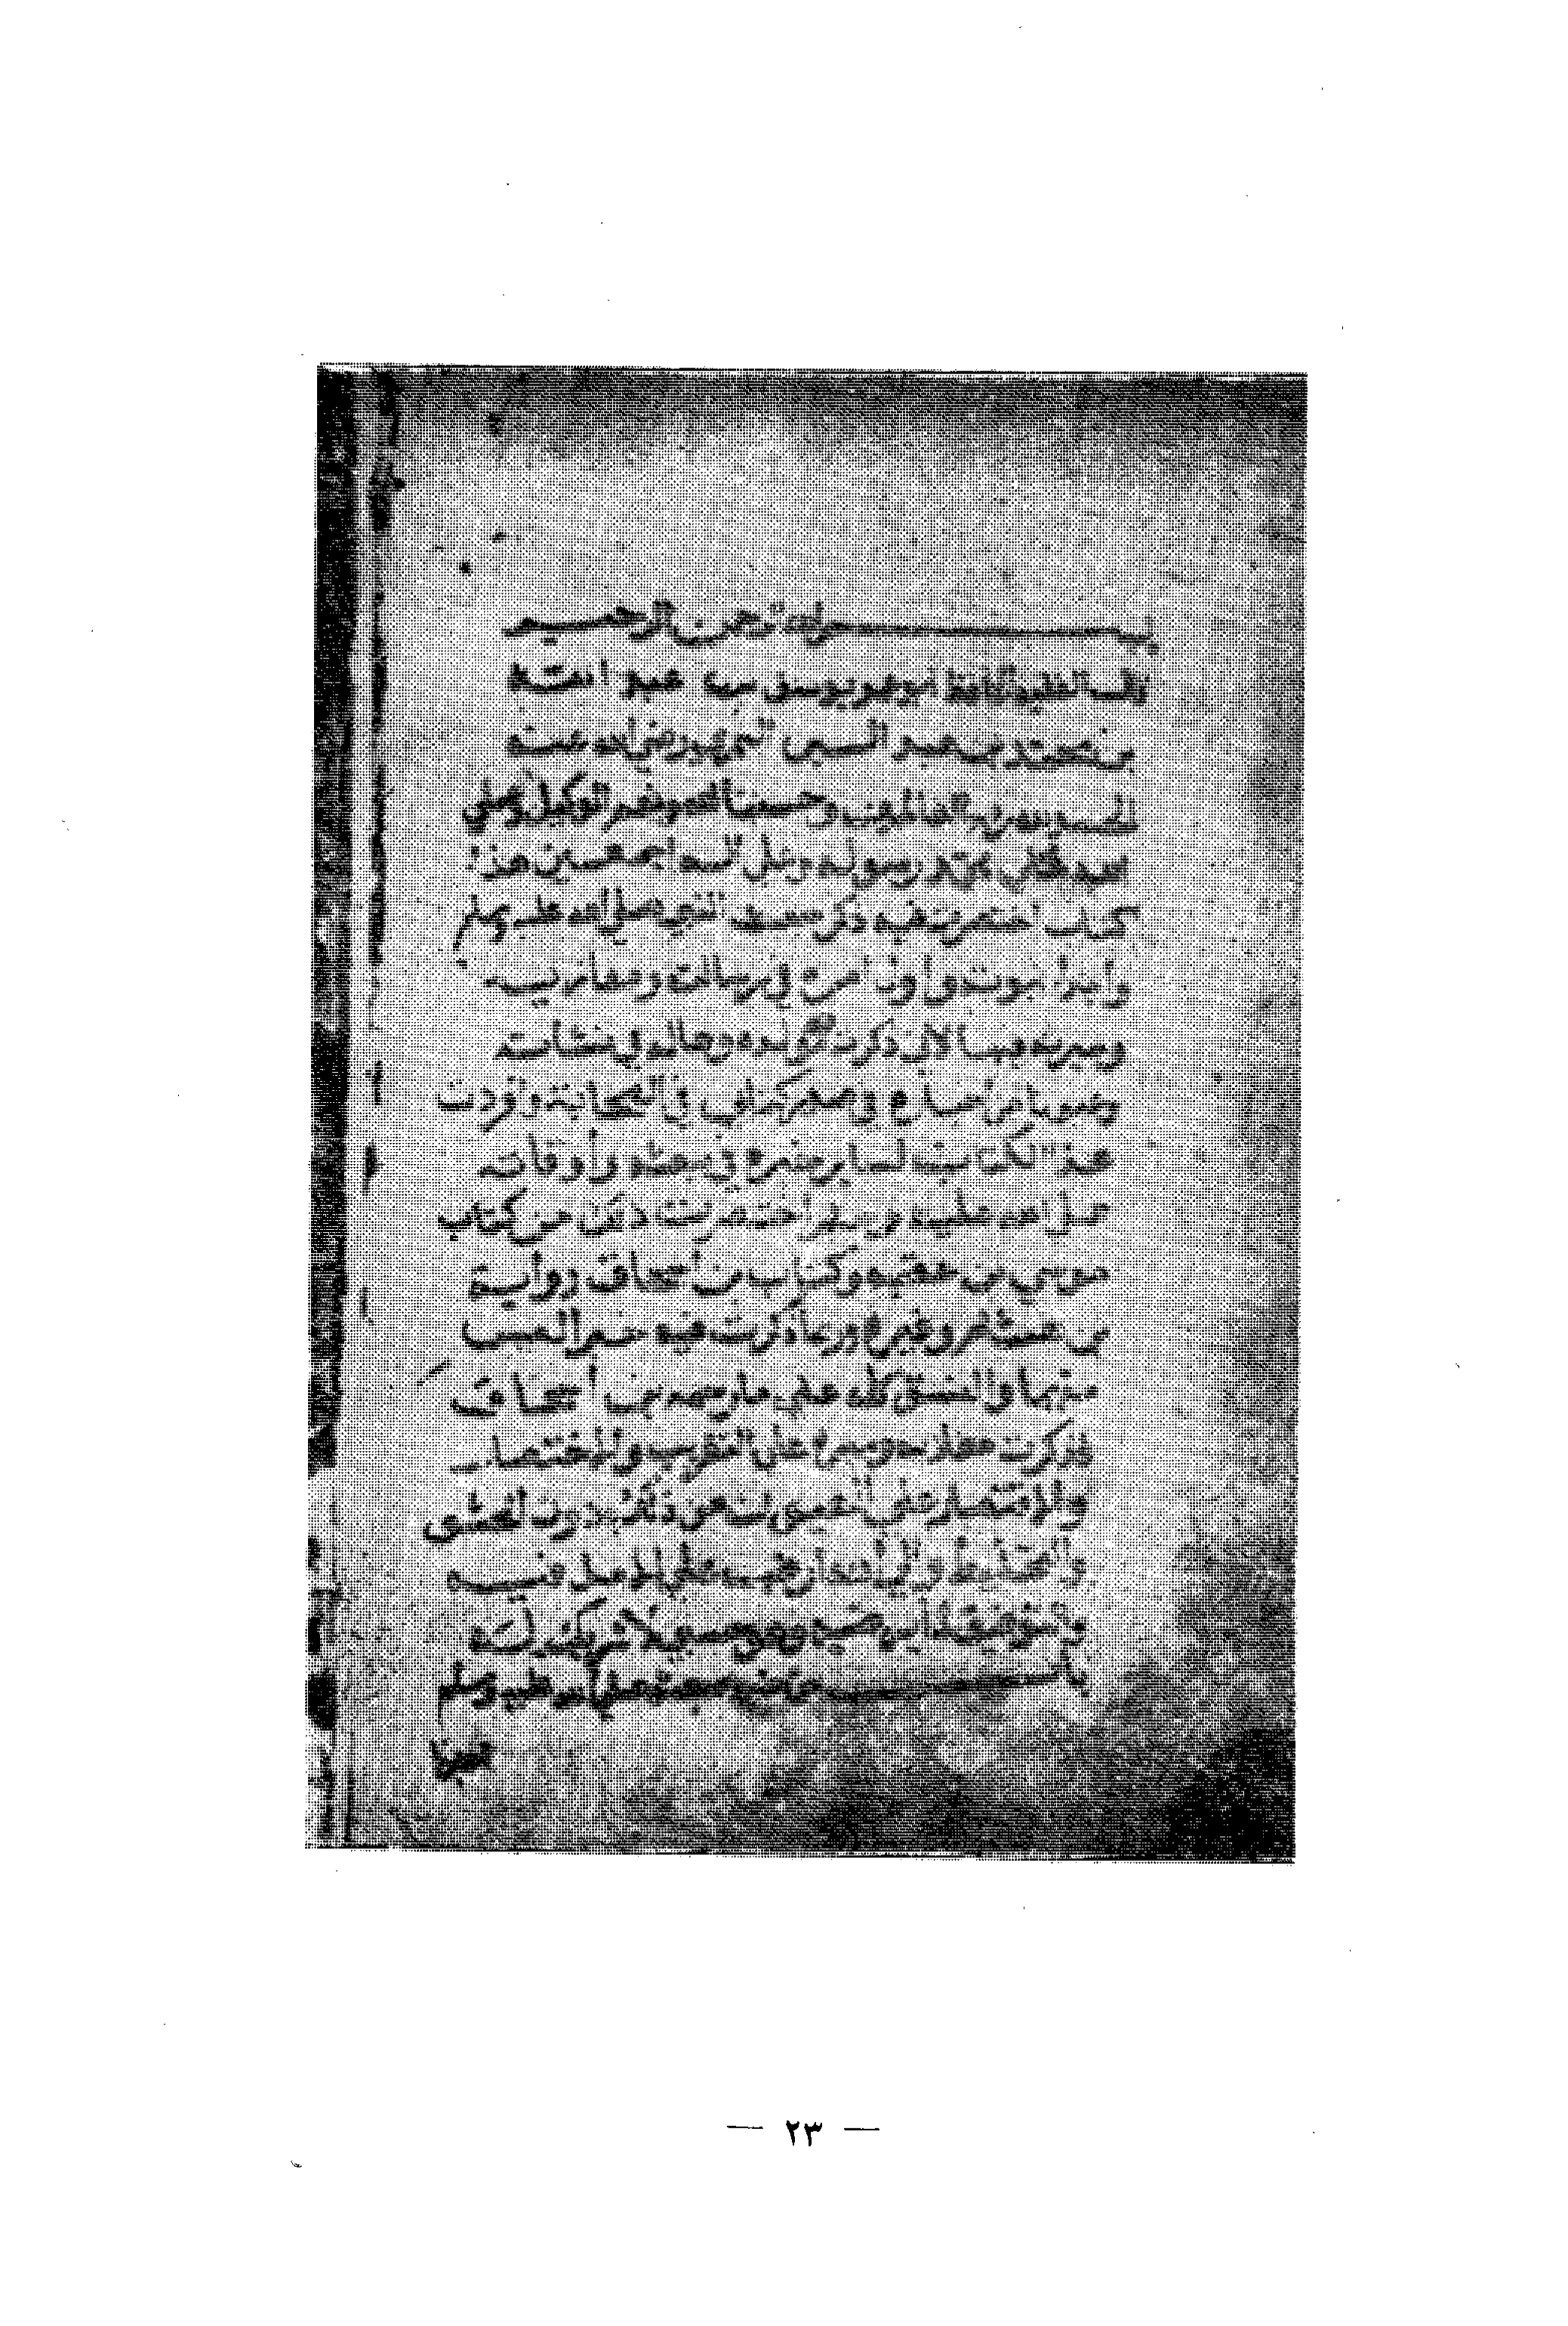 بسم الله الرحمن الرحيم
قال الفقيه الحافظ أبو عمر يوسف بن عبد الله
بن محمد بن عبد البر النمري رضي الله عنه
الحمد لله رب العالمين وحسبنا الله ونعم الوكيل وصلى
الله على محمد رسوله وعلى آله أجمعين هذا
كتاب اختصرت فيه ذكر مبعث النبي صلى الله عليه وسلم
وابتداء نبوته وأول أمره في رسالته ومغازيه
وسيرته فيها لأني ذكرت مولده وحاله في نشأته
وعيونا من أخباره في صدر كتابي في الصحابة وأفردت
هذا الكتاب لسائر خبره في مبعثه وأوقاته
صلى الله عليه وسلم اختصرت ذلك من كتاب
موسى بن عقبة وكتاب بن اسحاق رواية
بن هشام وغيره وربما ذكرت فيه خبرا ليس
منهما والنسق كله على ما رسمه بن اسحاق
فذكرت مغازيه وسيره على التقريب والاختصار
والاقتصار على العيون من ذلك دون الحشو
والتخليط وإلى الله أرغب في العون على الأمل فيه
والتوفيق لما يرضيه وهو حسبي لا شريك له
باب من خبر مبعثه صلى الله عليه وسلم
— ٢٣ —